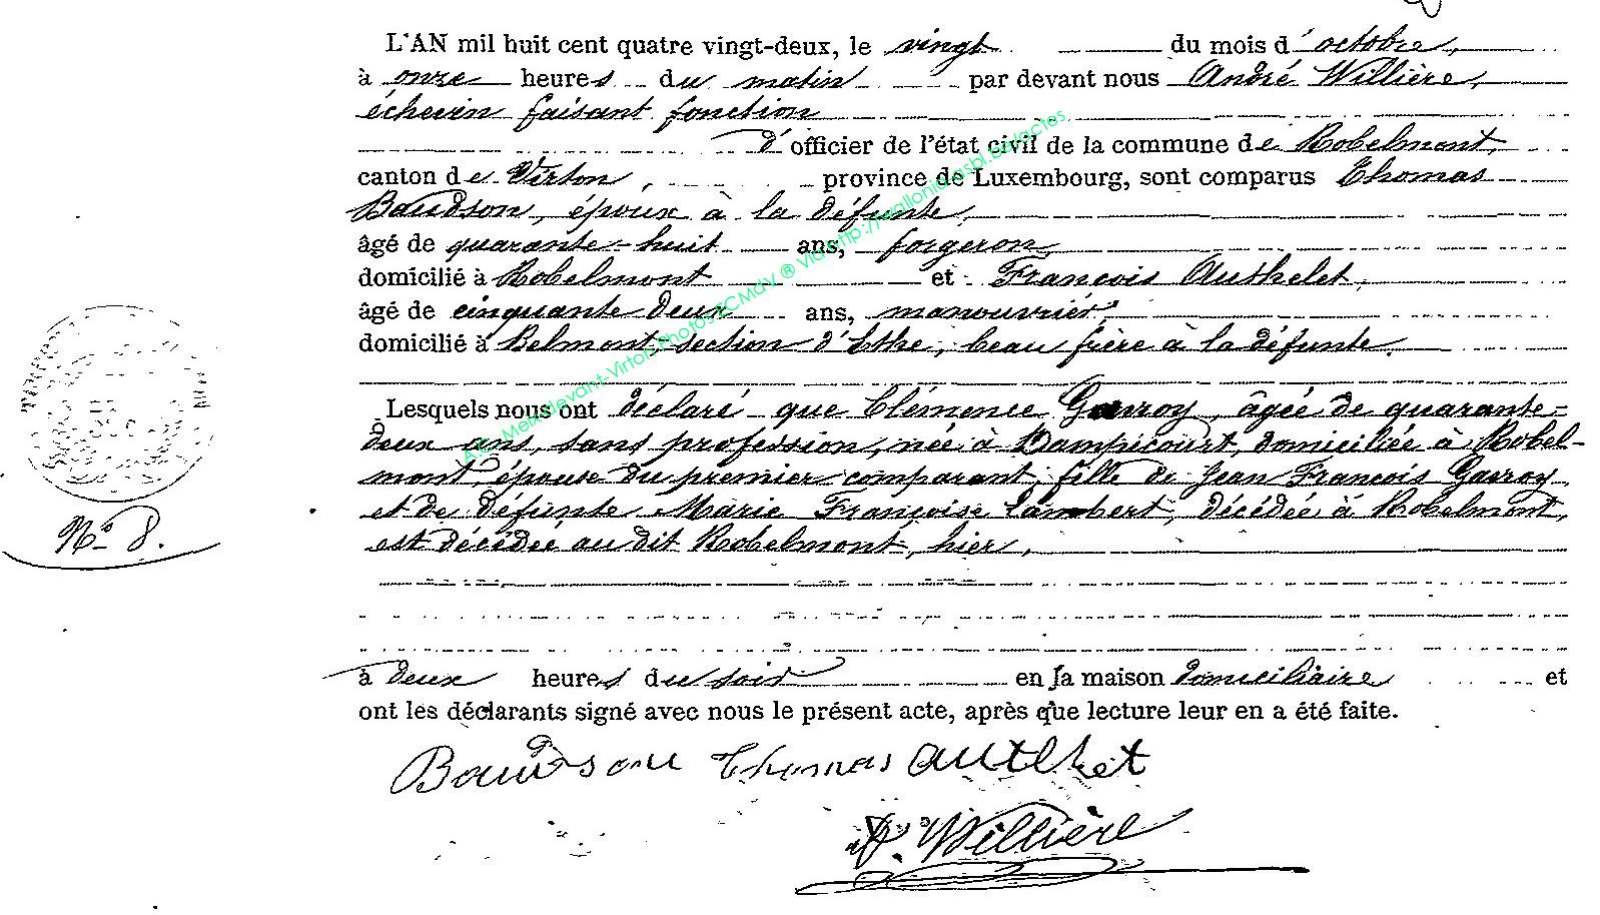 L'AN mil huit cent quatre vingt-deux, le vingt du mois d'octobre,
à onze heures du matin par devant nous André Willière,
échevin faisant fonction
d'officier de l'état civil de la commune de Robelmont,
canton de Virton, province de Luxembourg, sont comparus Thomas
Baudson, époux à la défunte,
âgé de quarante-huit ans, forgeron,
domicilié à Robelmont et François Authelet,
âgé de cinquante deux ans, manouvrier,
domicilié à Belmont, section d'Ethe, beau frère à la défunte.
Lesquels nous ont déclaré que Clémence Gavroy, âgée de quarante-
deux ans, sans profession, née à Dampicourt, domiciliée à Robel-
mont, épouse du premier comparant, fille de Jean François Gavroy,
et de défunte Marie Françoise Lambert, décédée à Robelmont,
est décédée au dit Robelmont, hier,
No 8.
à deux heures du soir en la maison domiciliaire et
ont les déclarants signé avec nous le présent acte, après que lecture leur en a été faite.
Baudson Thomas Authelet
A. Willière